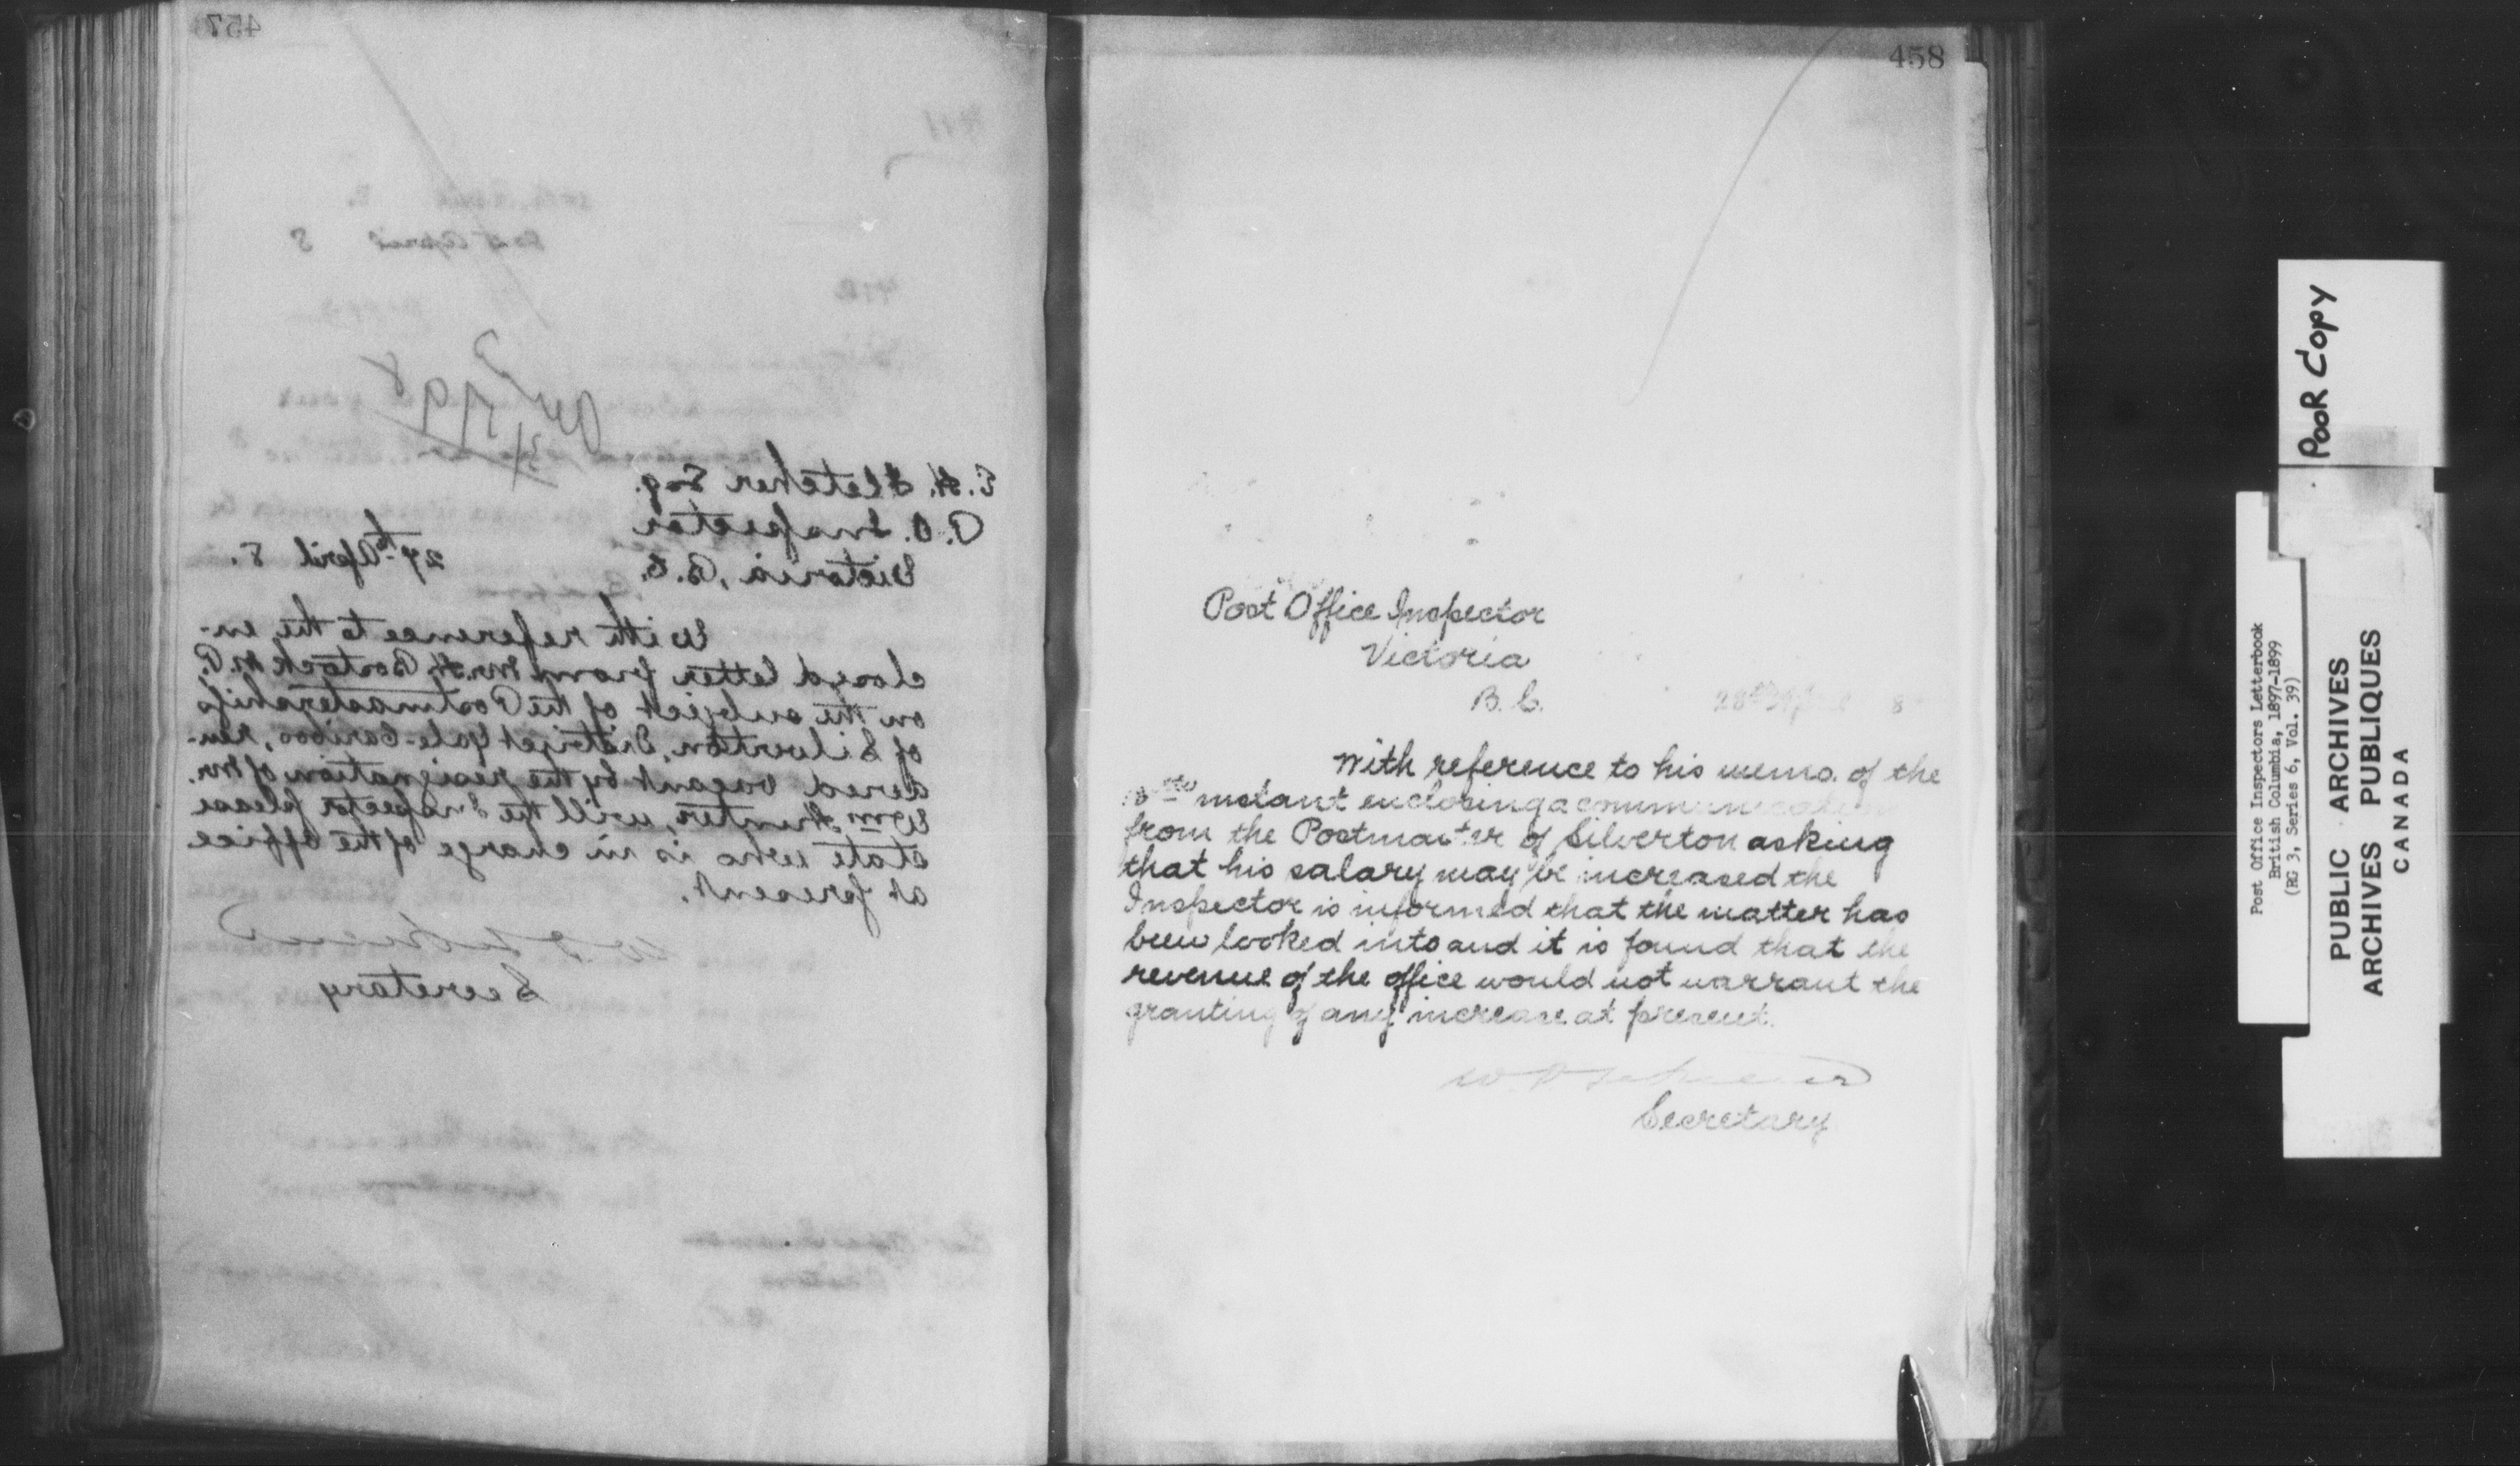 457
E. H. Fletcher Esq.
P. O. Inspector
Victoria, B.C.
27th April 8.
With reference to the en-
closed letter from Mr. H. Bostock M.P.
on the subject of the Postmastership
of Silverton, District Yale-Cariboo, ren-
dered vacant by the resignation of Mr.
Wm Hunter, will the Inspector please
state who is in charge of the office
at present.
Secretary
458
Post Office Inspector
Victoria
B. C.
28th April 8
With reference to his memo. of the
instant enclosing a communication
from the Postmaster of Silverton asking
that his salary may be increased the
Inspector is informed that the matter has
been looked into and it is found that the
revenue of the office would not warrant the
granting of any increase at present.
Secretary
PooR Copy
Post Office Inspectors Letterbook
British Columbia, 1897-1899
(RG 3, Series 6, Vol. 39)
PUBLIC ARCHIVES
ARCHIVES PUBLIQUES
CANADA